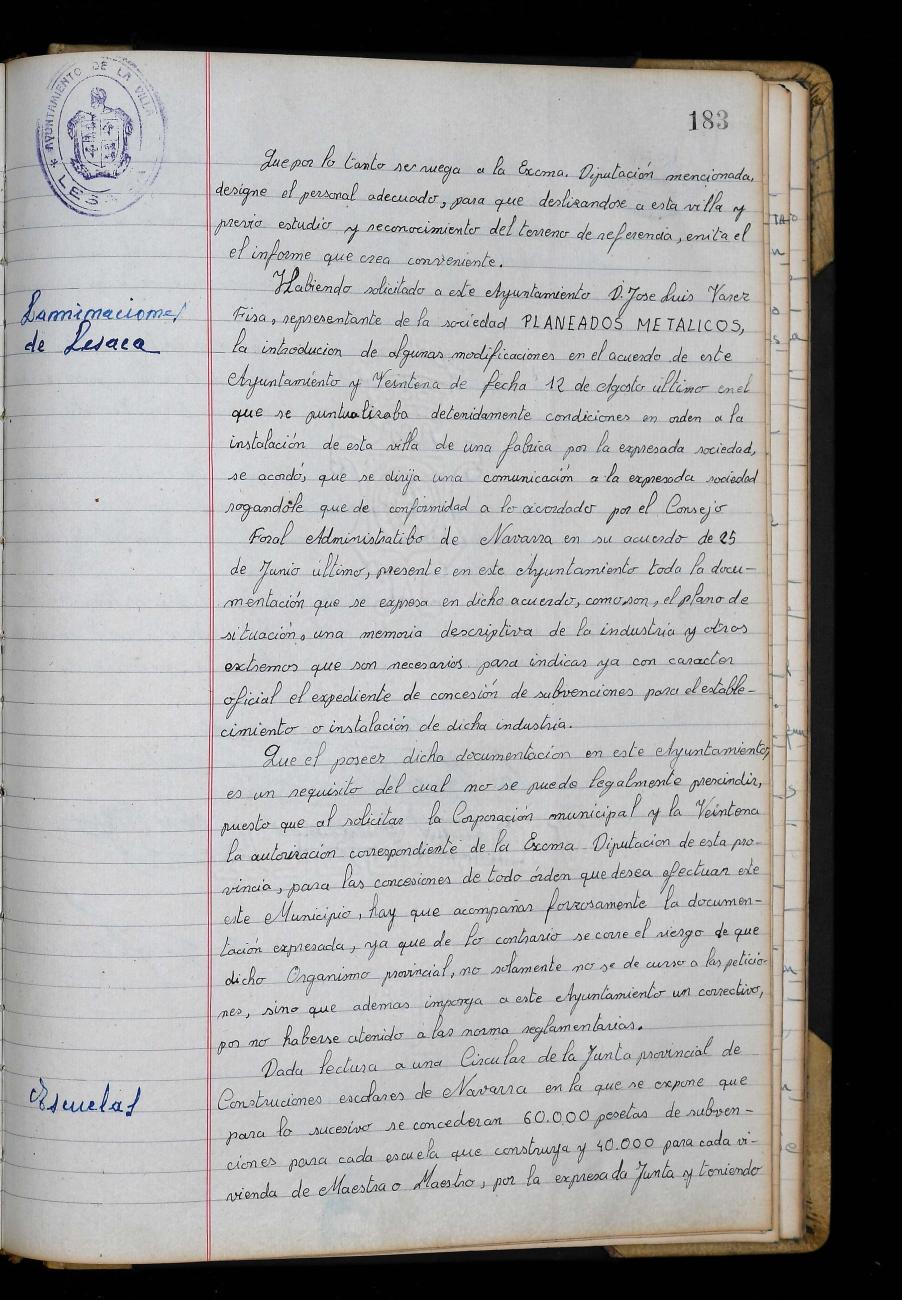 AYUNTAMIENTO DE LA VILLA
LESA
183
Que por lo tanto se ruega a la Excma. Diputación mencionada,
designe el personal adecuado, para que deslizandose a esta villa y
previo estudio y reconocimiento del terreno de referencia, emita el
el informe que crea conveniente.
Laminaciones
de Lesaca
Habiendo solicitado a este Ayuntamiento D. Jose Luis Varez
Fisa, representante de la sociedad PLANEADOS METALICOS,
la introducion de algunas modificaciones en el acuerdo de este
Ayuntamiento y Veintena de fecha 12 de Agosto último en el
que se puntualizaba detenidamente condiciones en orden a la
instalación de esta villa de una fabrica por la expresada sociedad,
se acordó, que se dirija una comunicación a la expresada sociedad
rogandole que de conformidad a lo acordado por el Consejo
Foral Administratibo de Navarra en su acuerdo de 25
de Junio último, presente en este Ayuntamiento toda la docu-
mentación que se expresa en dicho acuerdo, como son, el plano de
situación, una memoria descriptiva de la industria y otros
extremos que son necesarios para indicar ya con caracter
oficial el expediente de concesión de subvenciones para el estable-
cimiento o instalación de dicha industria.
Que el poseer dicha documentacion en este Ayuntamiento,
es un requisito del cual no se puede legalmente prescindir,
puesto que al solicitar la Corporación municipal y la Veintena
la autorizacion correspondiente de la Excma Diputacion de esta pro-
vincia, para las concesiones de todo órden que desea efectuar este
este Municipio, hay que acompañar forzosamente la documen-
tación expresada, ya que de lo contrario se corre el riesgo de que
dicho Organismo provincial, no solamente no se de curso a las peticio-
nes, sino que ademas imponga a este Ayuntamiento un correctivo,
por no haberse atenido a las norma reglamentarias.
Escuelas
Dada lectura a una Circular de la Junta provincial de
Construciones escolares de Navarra en la que se expone que
para lo sucesivo se concederan 60.000 pesetas de subven-
ciones para cada escuela que construya y 40.000 para cada vi-
vienda de Maestra o Maestro, por la expresada Junta y teniendo